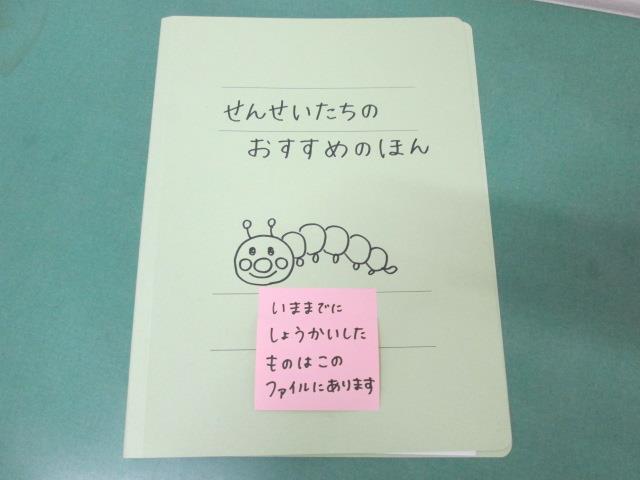 せんせいたちの
おすすめのほん
いままでに
しょうかいした
ものはこの
ファイルにあります